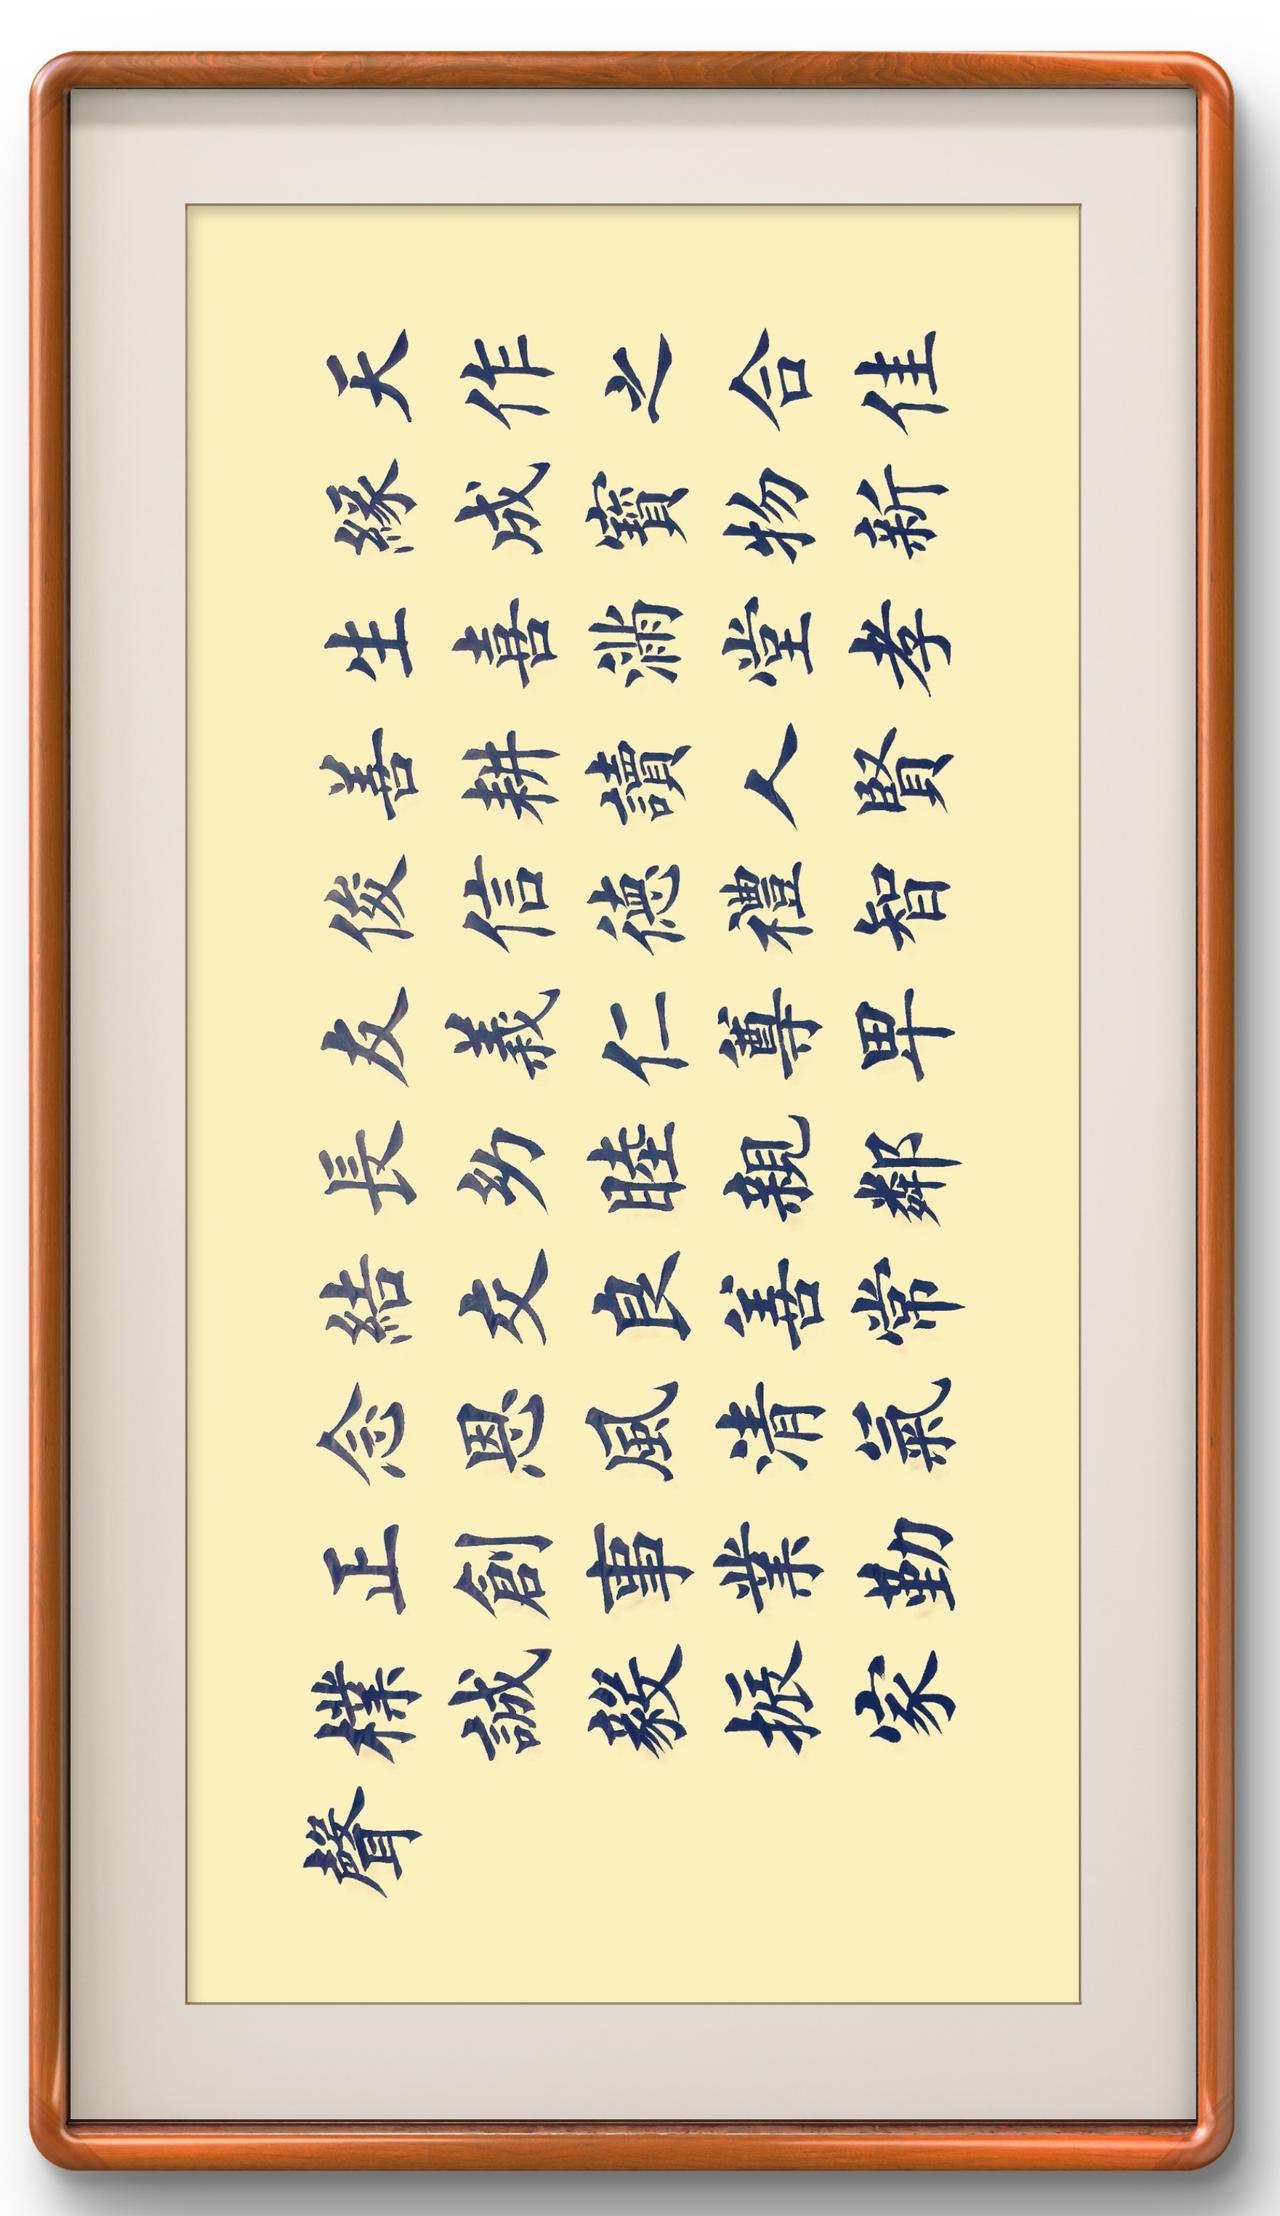 天作之合佳
緣成寶物新
生喜滿堂孝
善耕讀人賢
俊信德禮智
友義仁尊卑
長幼睦親鄰
結交良善常
念恩風清氣
正創事業勤
樸誠毅振家
聲